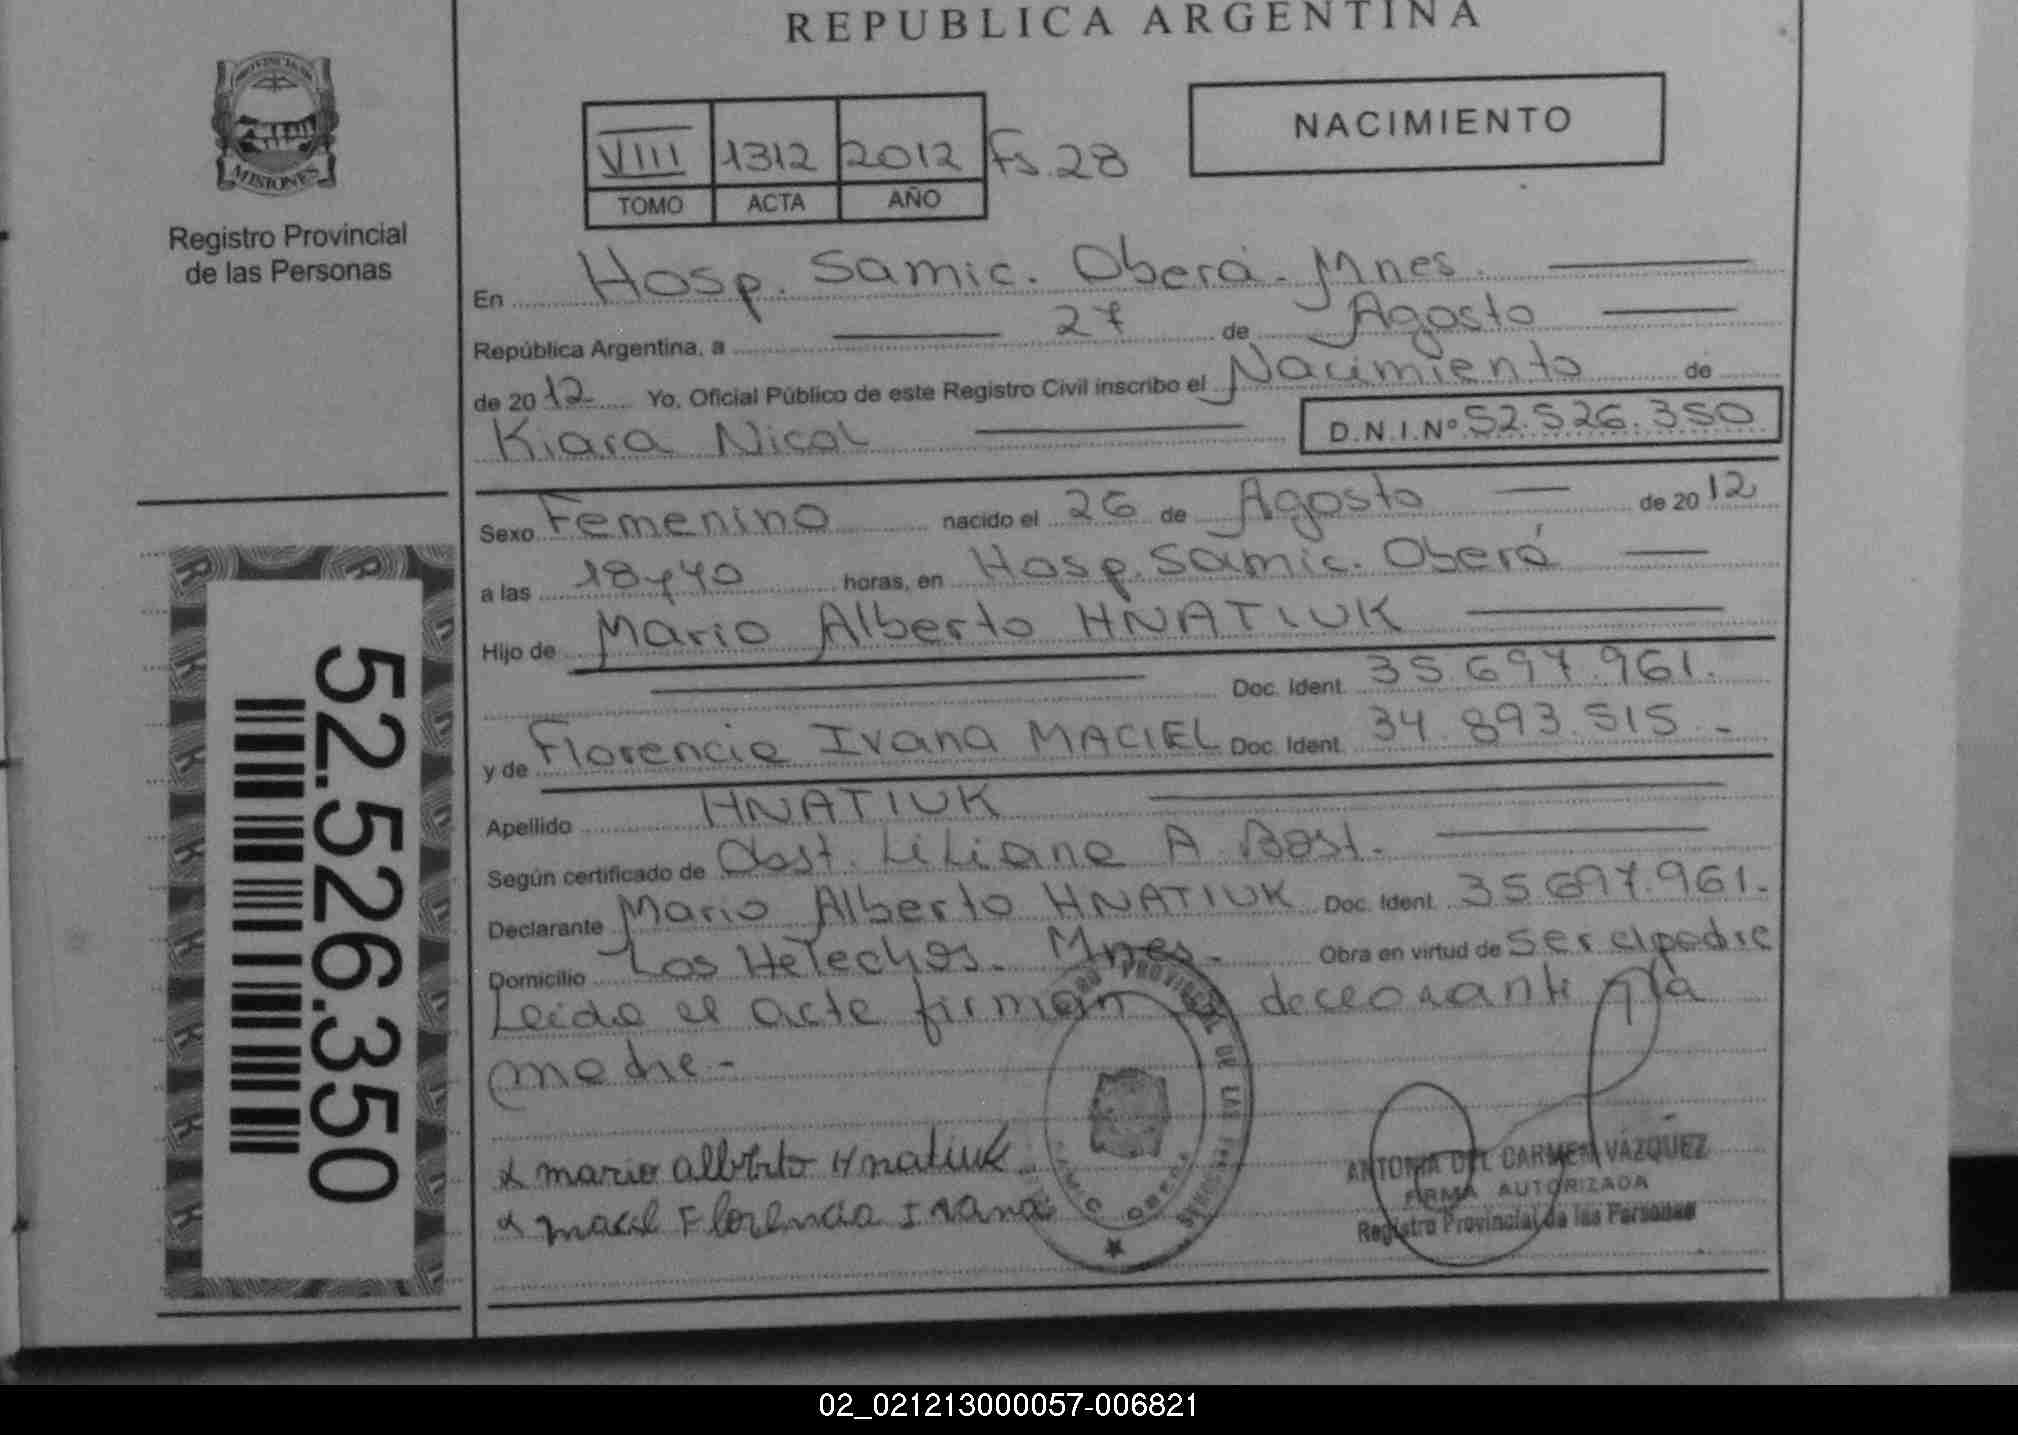 REPUBLICA ARGENTINA
PROVINCIA DE
MISIONES
Registro Provincial
de las Personas
NACIMIENTO
VIII 1312 2012 Fs. 28
TOMO ACTA AÑO
En Hosp. Samic. Oberá. Mnes.
República Argentina, a 27 de Agosto
de 2012 Yo, Oficial Público de este Registro Civil inscribo el Nacimiento de
Kiara Nicol D.N.I.Nº 52.526.350
Sexo Femenino nacido el 26 de Agosto de 2012
a las 18y40 horas, en Hosp. Samic. Oberá
Hijo de Mario Alberto HNATIUK
Doc. Ident. 35.697.961.
y de Florencia Ivana MACIEL Doc. Ident. 34.893.515.-
Apellido HNATIUK
Según certificado de Obst. Liliana A. Bast.
Declarante Mario Alberto HNATIUK Doc. Ident. 35697.961.
Domicilio Los Helechos. Mnes. Obra en virtud de ser el padre
Leida el acta firman el declarante y la
madre.-
x mario alberto Hnatiuk
x maciel Florencia Ivana
PROVINCIAL DE LAS PERSONAS
OBERA
ANTONIA DEL CARMEN VAZQUEZ
FIRMA AUTORIZADA
Registro Provincial de las Personas
52.526.350
02_021213000057-006821